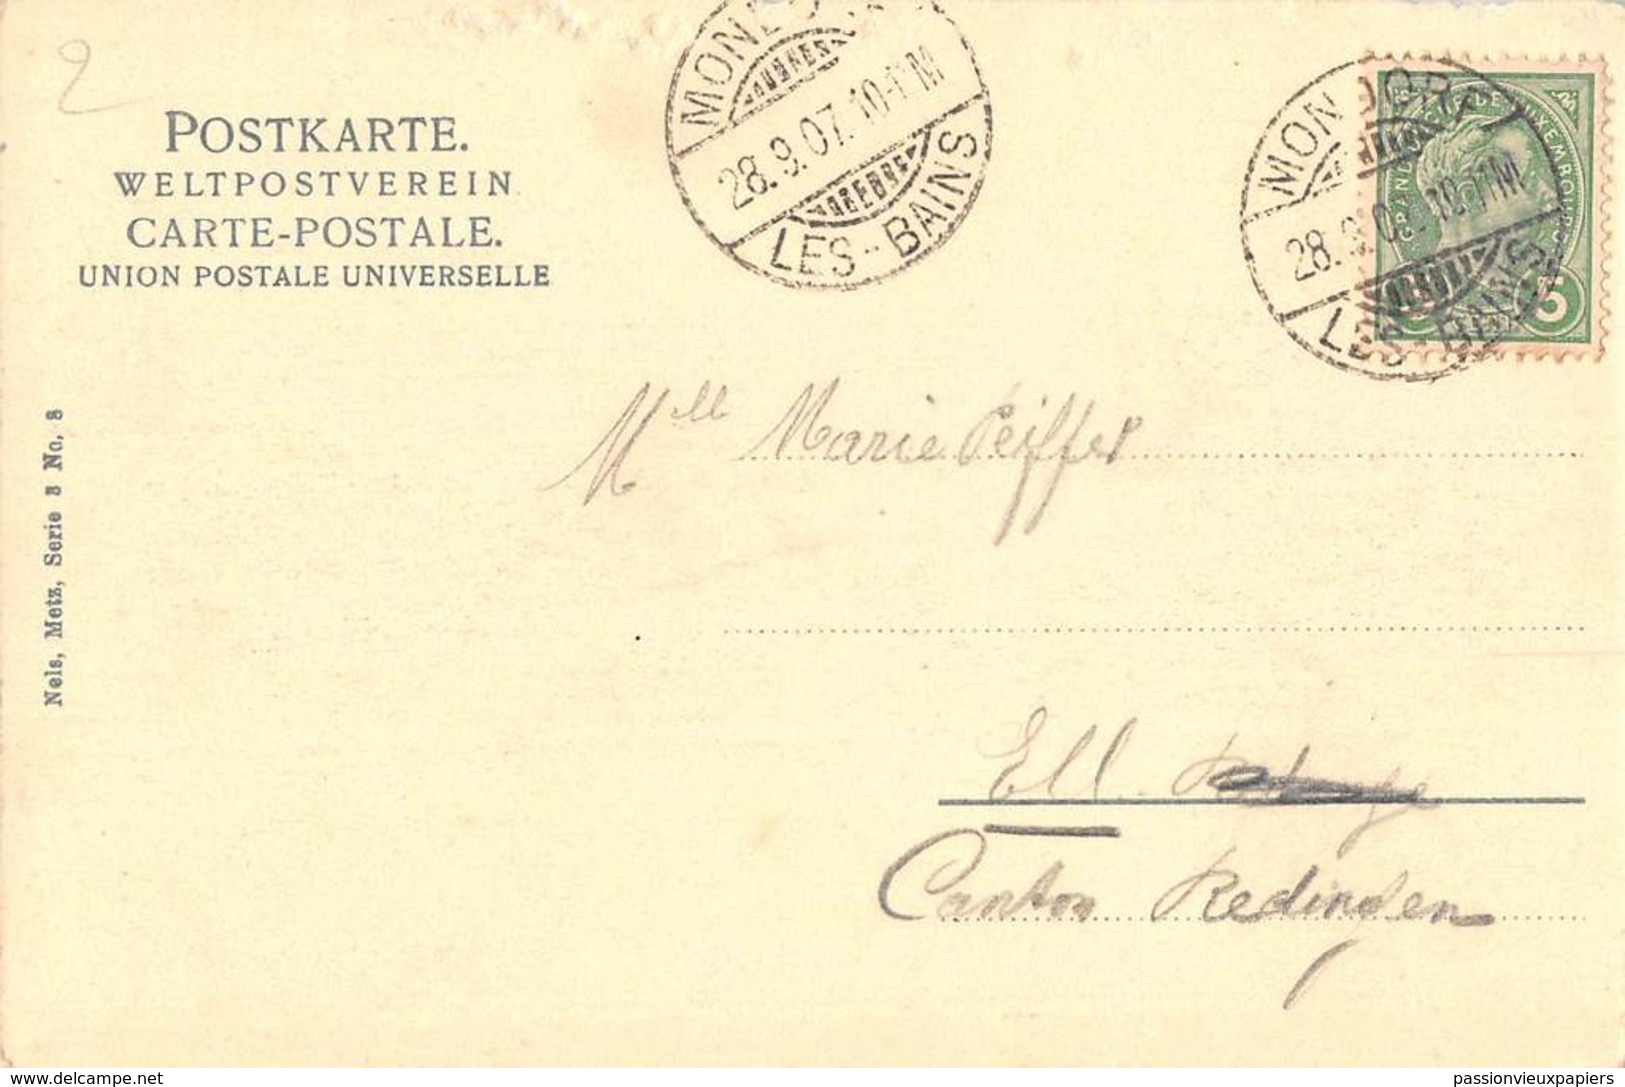 2
POSTKARTE.
WELTPOSTVEREIN
CARTE-POSTALE.
UNION POSTALE UNIVERSELLE
MONDORF
28.9.07. 10-11M
LES-BAINS
MONDORF
28.9.07. 10-11M
LES-BAINS
GRAND DUCHÉ DE LUXEMBOURG
5
Nels, Metz, Serie 3 No. 8
Mlle Marie Peiffer
Ell.
Canton Redingen
delcampe.net
passionvieuxpapiers